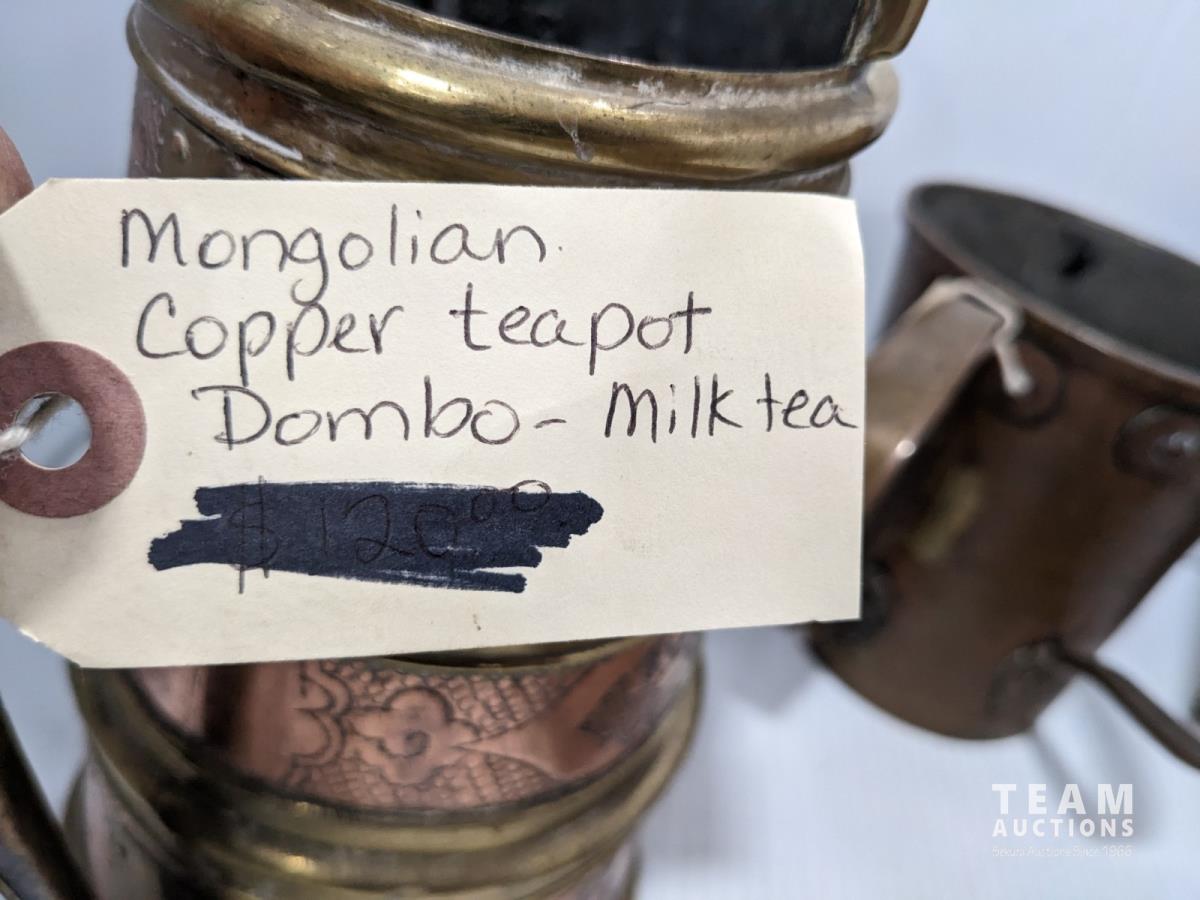 Mongolian
Copper teapot
Dombo - Milk tea
$120.00
TEAM
AUCTIONS
Sekura Auctions Since 1966